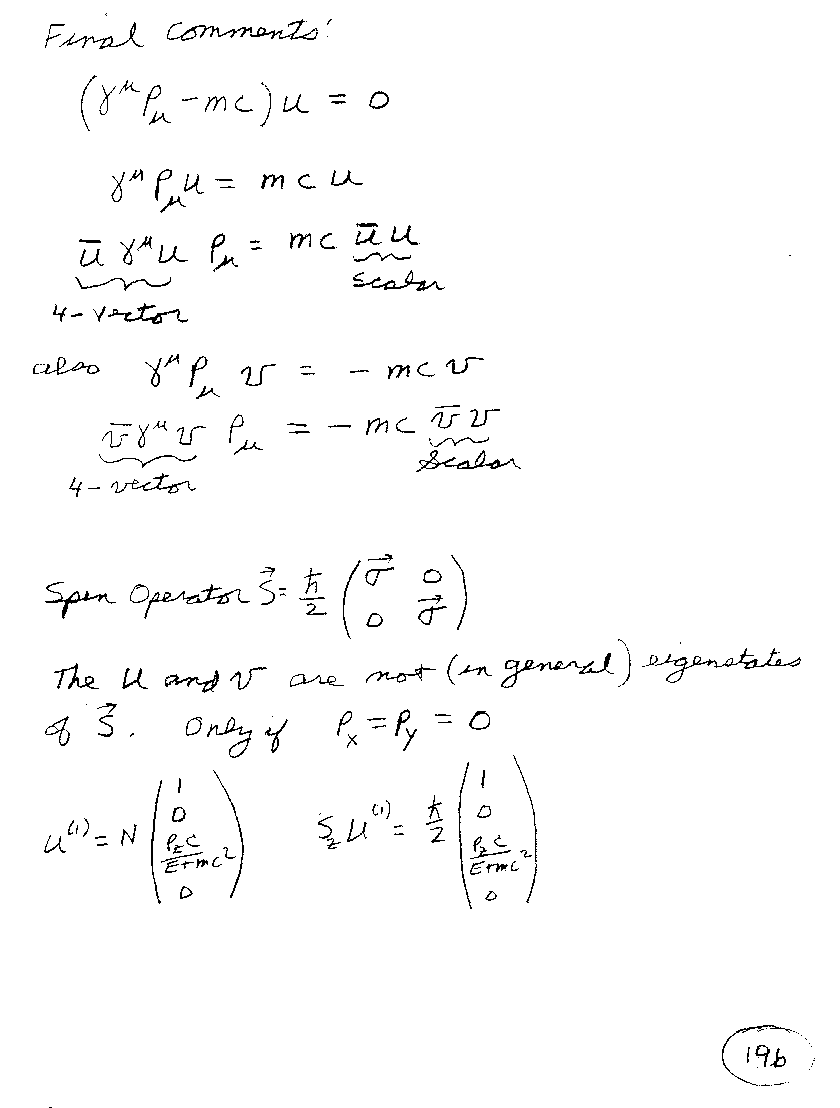 Final Comments:
(γ^μ P_μ - mc) u = 0
γ^μ P_μ u = mc u
ū γ^μ u P_μ = mc ū u
4-vector scalar
also γ^μ P_μ v = - mc v
v̄ γ^μ v P_μ = - mc v̄ v
4-vector Scalar
Spin Operator S⃗ = ħ/2 (σ⃗ 0
0 σ⃗)
The u and v are not (in general) eigenstates
of S⃗. Only if P_x = P_y = 0
u^(1) = N (1 0 P_z c/(E+mc²) 0) S_z u^(1) = ħ/2 (1 0 P_z c/(E+mc²) 0)
19b